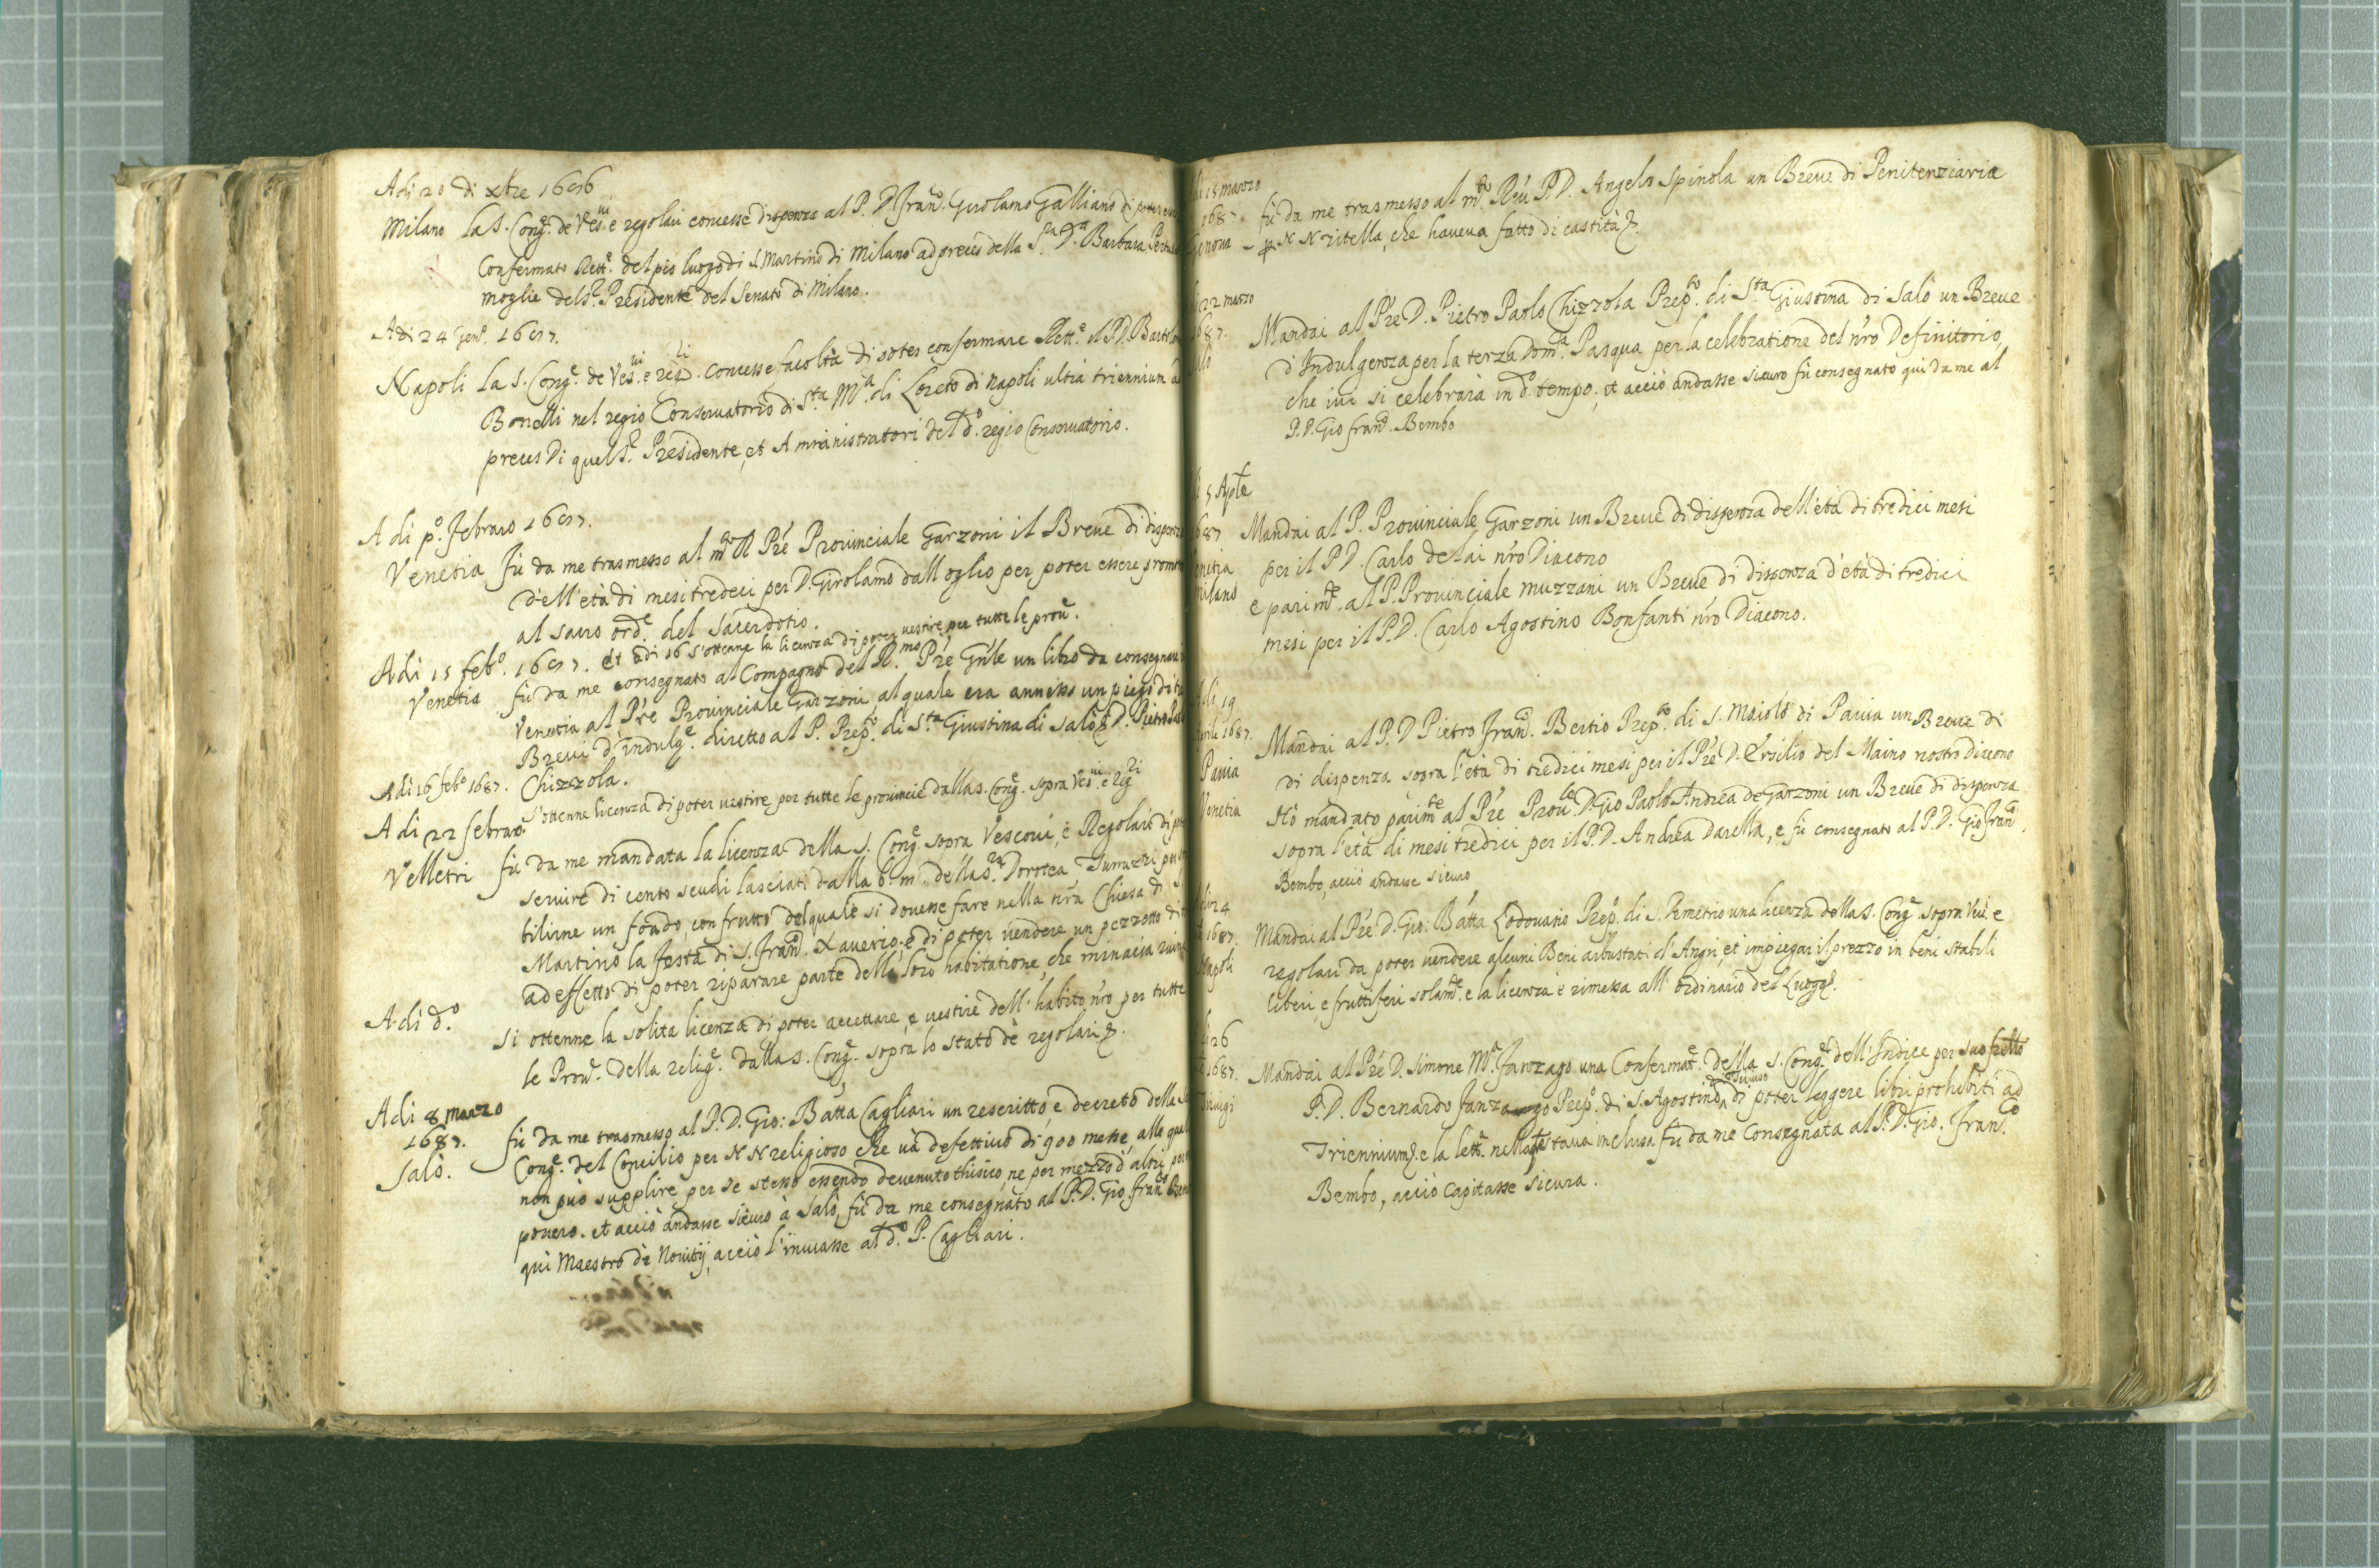 Adi 20 di xbre 1686
Milano la S. Congne. de Vesvi e regolari concesse dispensa al P. D. Franco. Girolamo Galliano di poter
Confermato Rettre. del pio luogo di S. Martino di Milano ad preces della Sra. Da. Barbara
moglie del Sr. Presidente del Senato di Milano.
Adi 24 Geno. 1687.
Napoli la S. Conge. de Vesvi e regri. concesse facoltà di poter confermare Rette. il P. D. Bartolo
Bonelli nel regio Conservatorio di Sta. Ma. di Loreto di Napoli ultra triennium
preces di quel Sre. Presidente, et Amministratori del do. regio Conservatorio.
A di po. febraro 1687.
Venetia fù da me trasmesso al mto R Prē Provinciale Garzoni il Breve di dispenza
dell'età di mesi tredeci per D. Girolamo dall oglio per poter essere
al sacro orde. del Sacerdotio.
Adi 15 febo. 1687. et adi 16 s'ottenne la licenza di poter vestire per tutte le prove.
Venetia fù da me consegnato al Compagno del Rmo. Prē Gnle un libro da consegnare
Venetia al Prē Provinciale Garzoni, al quale era annesso un piego di
Brevi d'indulge. diretto al P. Prepto. di Sta Giustina di Salò D. Pietro
Chizzola.
Adi 16 febo 1687. s'ottenne licenza di poter vestire per tutte le provincie dalla S. Conge. sopra Vesvi e regri
A di 22 febraro
Velletri fù da me mandata la licenza della S. Conge. sopra Vescovi, e Regolari di
servire di cento scudi lasciati dalla b. m. della Sra. Dorotea
bilirne un fondo, con frutto del quale si dovesse fare nella nrā Chiesa di S.
Martino la festa di S. Franco. Xaverio, e di poter vendere un pezzetto di
ad effetto di poter riparare parte della loro habitatione, che minacia
Adi do.
si ottenne la solita licenza di poter accettare, e vestire dell' habito nrō per tutte
le Prove. della relige. dalla S. Conge. sopra lo stato de regolari &.
Adi 8 marzo
1687.
Salò.
fù da me trasmesso al P. D. Gio: Batta Cagliari un rescritto, e decreto della S.
Conge. del Concilio per N N religioso che và defettivo di 900 messe, alle quali
non può supplire per se stesso essendo devenuto thisico, ne per mezzo d'altri
povero. et acciò andasse sicuro à Salò, fù da me consegnato al P. D. Gio. Franco
qui Maestro de Novitij, acciò l'inviasse al do. P. Cagliari.
di 15 marzo
1687.
Genova
fù da me trasmesso al mto. Reu P. D. Angelo Spinola un Breve di Penitenziaria
N N zitella, che haveva fatto di castità &.
22 marzo
687.
Mandai al Prē D. Pietro Paolo Chizzola Prepto. di Sta Giustina di Salò un Breve
d'Indulgenza per la terza Doma. Pasqua per la celebratione del nrō Definitorio,
che ivi si celebrarà in do. tempo, et acciò andasse sicuro fù consegnato qui da me al
P. D. Gio franco. Bembo
5 Aple
687
Mandai al P. Provinciale Garzoni un Breve di dispenza dell'età di tredici mesi
per il P D. Carlo delai nrō Diacono
milano
e parimte. al P. Provinciale Muzzani un Breve di dispenza d'età di tredici
mesi per il P. D. Carlo Agostino Bonfanti nrō Diacono.
di 19
Aprile 1687.
Pavia
Mandai al P. D Pietro Franco. Bertio Prepto. di S. Maiolo di Pavia un Breve di
di dispenza sopra l'età di tredici mesi per il Prē D. Ersilio del Maino nostro diacono
Venetia
Hò mandato parimte al Prē Provle D. Gio Paolo Andrea de Garzoni un Breve di dispenza
sopra l'età di mesi tredici per il P. D. Andrea Darella, e fù consegnato al P. D. Gio Franco.
Bembo, acciò andasse sicuro
di 24
1687.
Napoli
Mandai al Prē D. Gio: Batta Lodovario Prepo. di S. Demetrio una licenza della S. Conge sopra Vesi e
regolari da poter vendere alcuni Beni arbustati d'Angri et impiegar il prezzo in beni stabili
liberi, e fruttiferi solamte. e la licenza è rimessa all' ordinario del Luogo.
26
1687.
Mandai al Prē D. Simone Ma. Fanzago una Confermate. della S. Conge. dell'Indice per suo frēllo
P. D. Bernardo Fanzago Prepo. di S. Agostino di poter leggere libri prohibiti ad
Triennium &. e la lettra. nella qle stava inclusa fù da me Consegnata al P. D. Gio. Franco.
Bembo, acciò capitasse sicura.